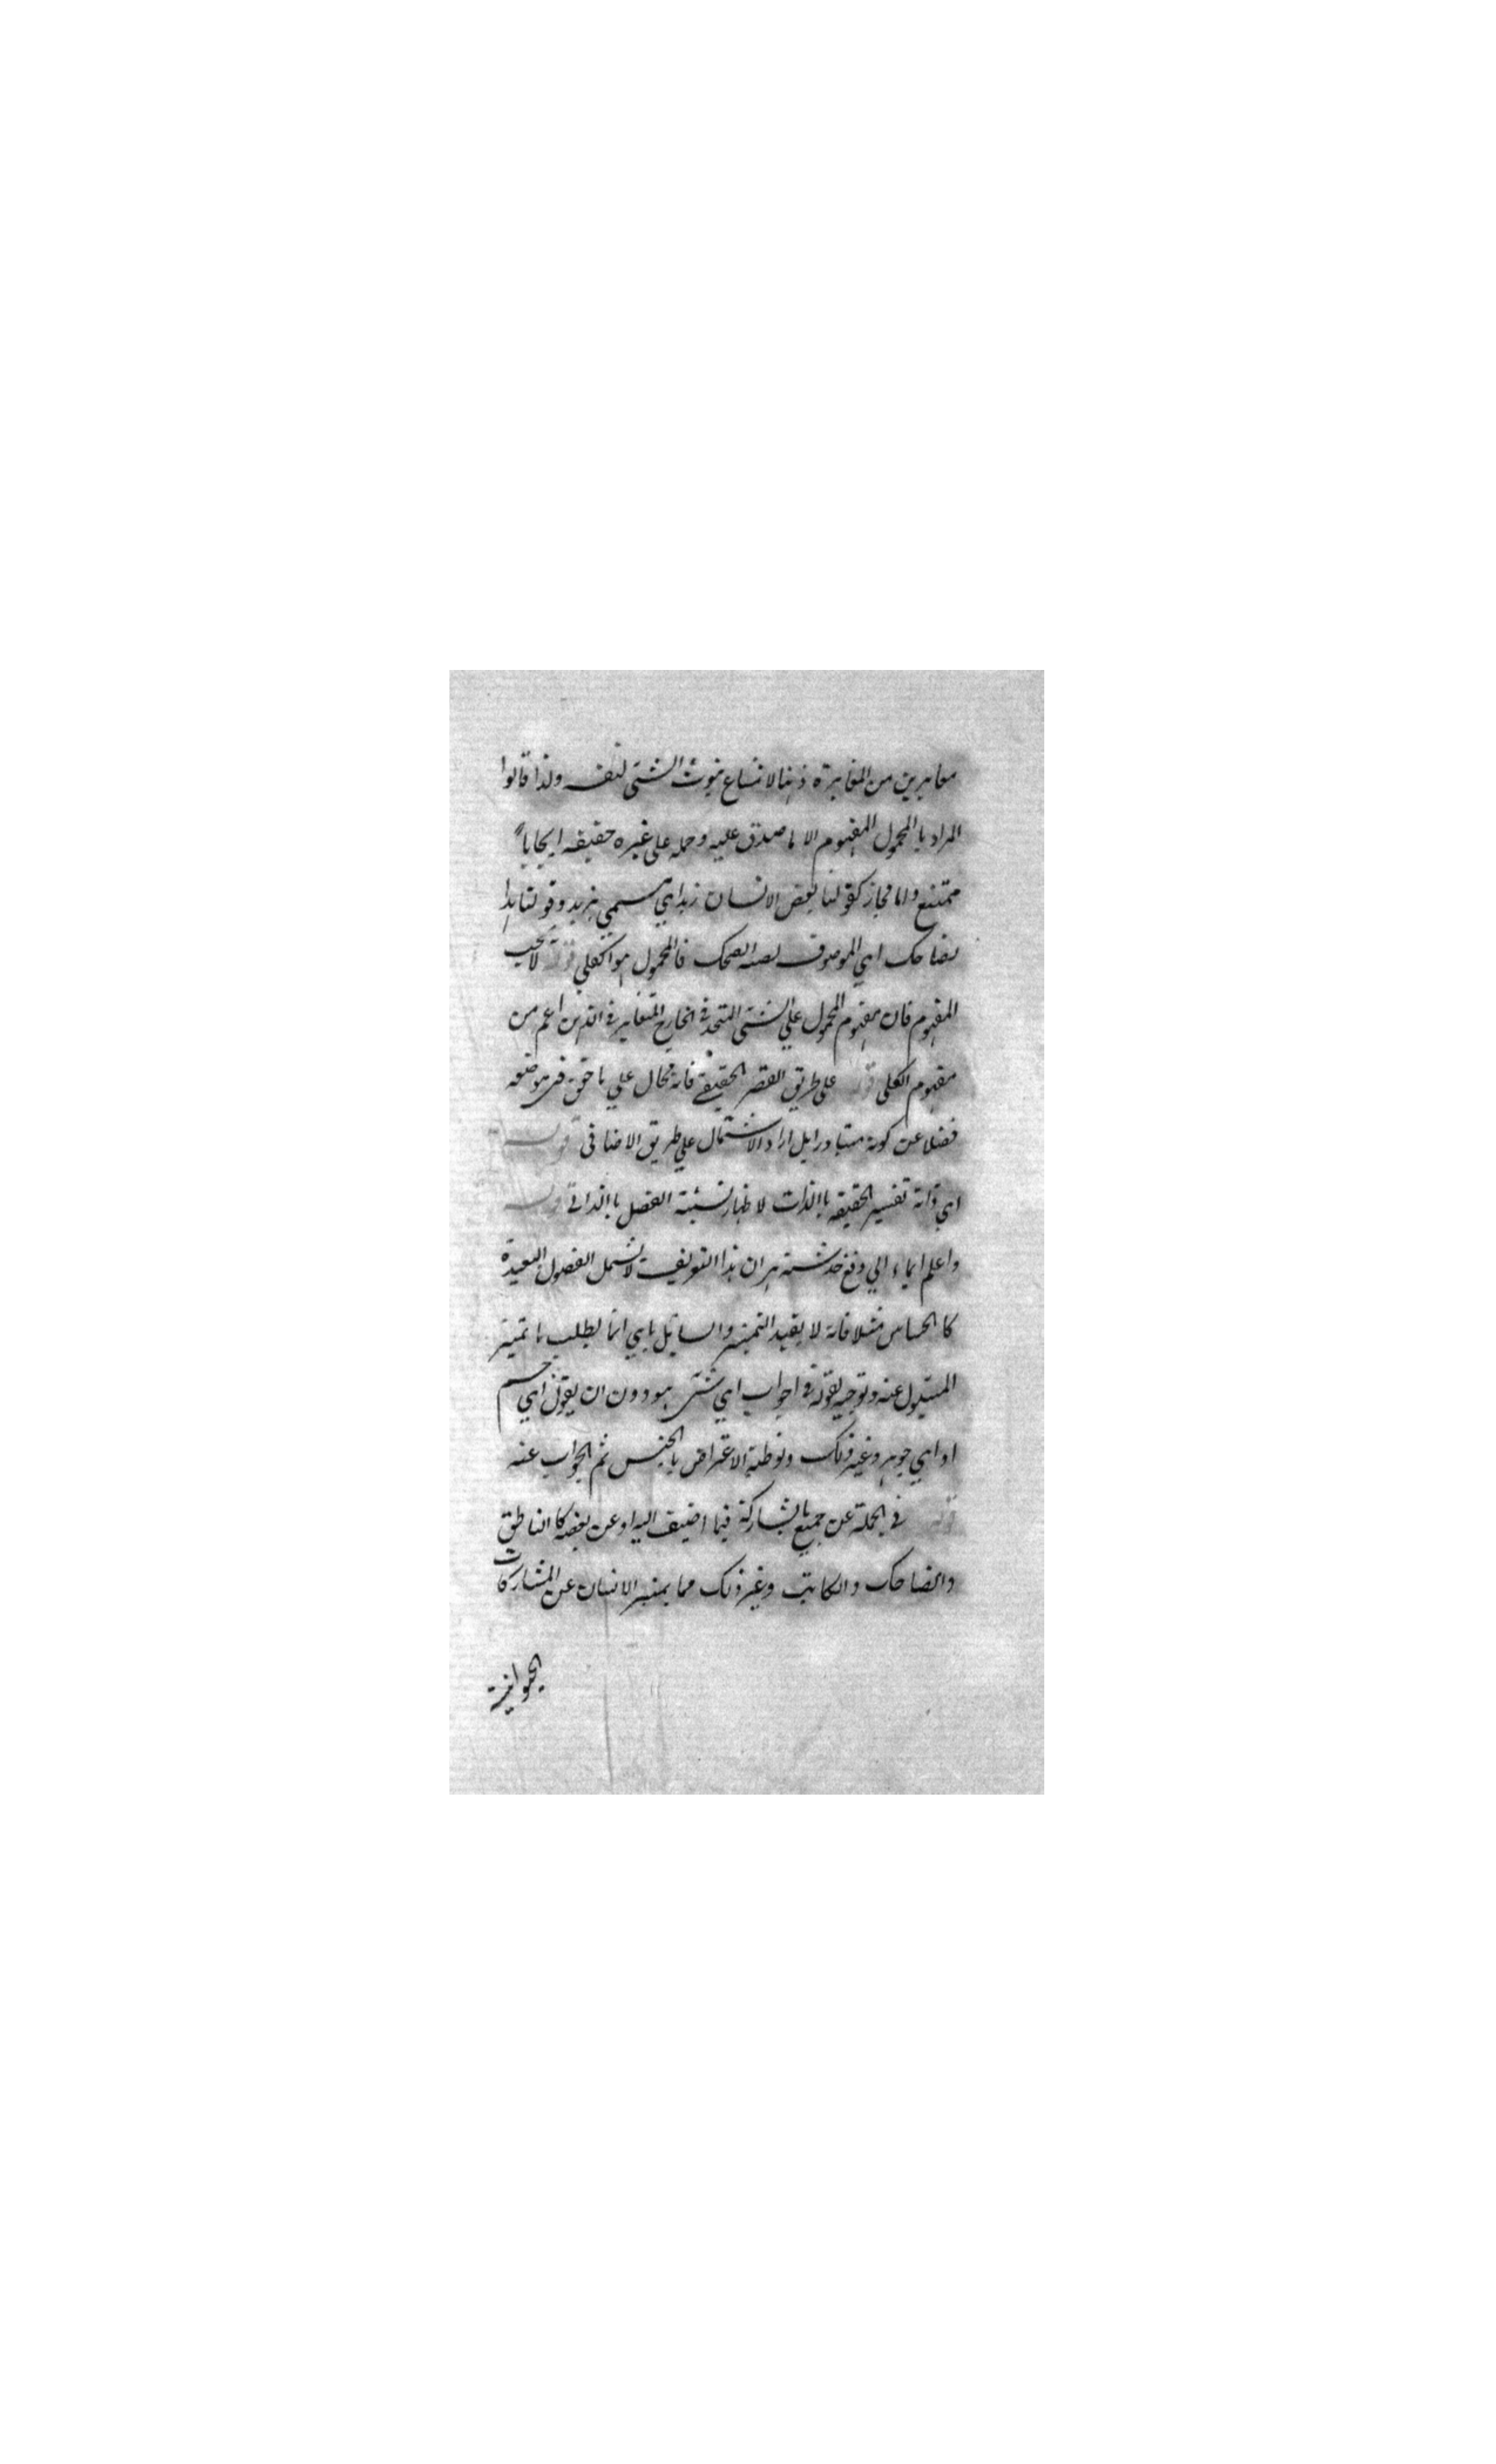 مغايرين من المغايرة ذهنا لامتناع ثبوت الشئ لنفسه ولذا قالوا
المراد بالمحمول المفهوم الا ما صدق عليه وحمله على غيره حقيقه ايجابا
ممتنع واما مجاز كقولنا بعض الانسان زيد اى مسمى بزيد وقولنا هذا
لضاحك اي الموصوف بصفه الضحك فالمحمول هو الكلي قوله لا بحسب
المفهوم فان مفهوم المحمول علي الشئ المتحد في الخارج المتغاير في الذهن اعم من
مفهوم الكلى قوله على طريق القصر الحقيقي فانه محال علي ما حقق في موضعه
فضلا عن كونه متبادرا بل اراد الاشتمال علي طريق الاضافى قوله
اي ذاته تفسير الحقيقه بالذات لاظهار نسبة الفصل بالذاتي قوله
واعلم ايماء الي دفع خدشة هى ان هذا التعريف لا يشمل الفصول البعيدة
كالحساس مثلا فانه لا يفيد التميز والسايل باي انما يطلب ما تميز
المسئول عنه وتوجيه لقوله في جواب اي شئ هو دون ان يقول اي جسم
او اي جوهر وغير ذلك وتوطئة الاعتراض بالجنس ثم الجواب عنه
قوله في الجملة عن جميع ما يشاركه فيما اضيف اليه او عن بعضه كالناطق
والضاحك والكاتب وغير ذلك مما يميز الانسان عن المشاركات
الحيوانية